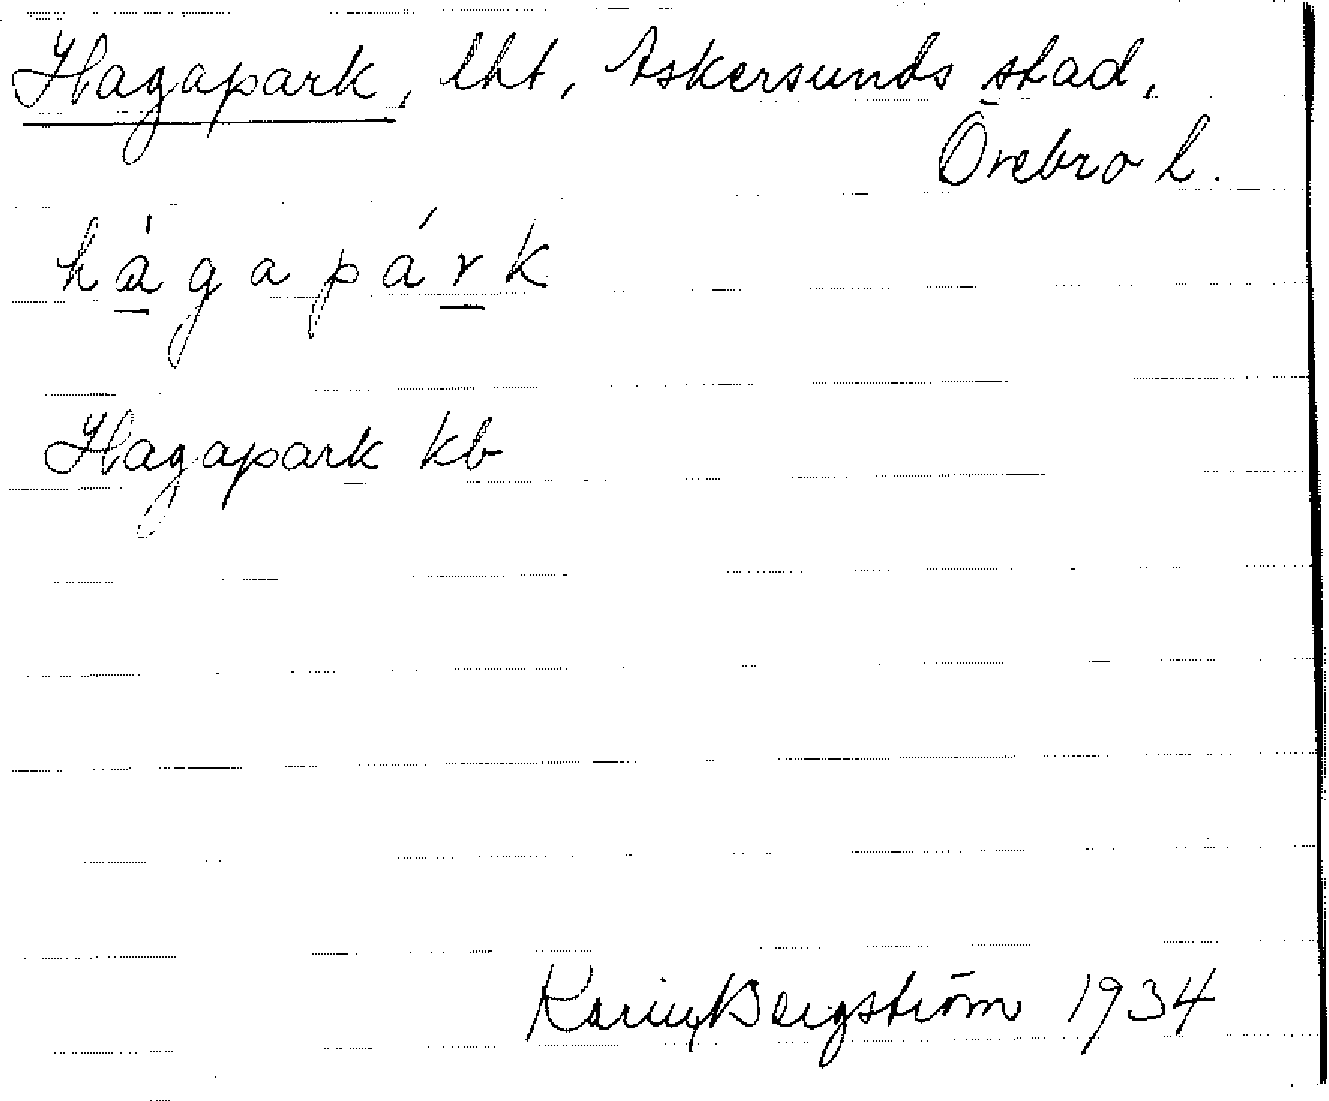 Hagapark, lht, Askersunds stad,
Örebro l.
hágapárk
Hagapark kb
Karin Bergström 1934